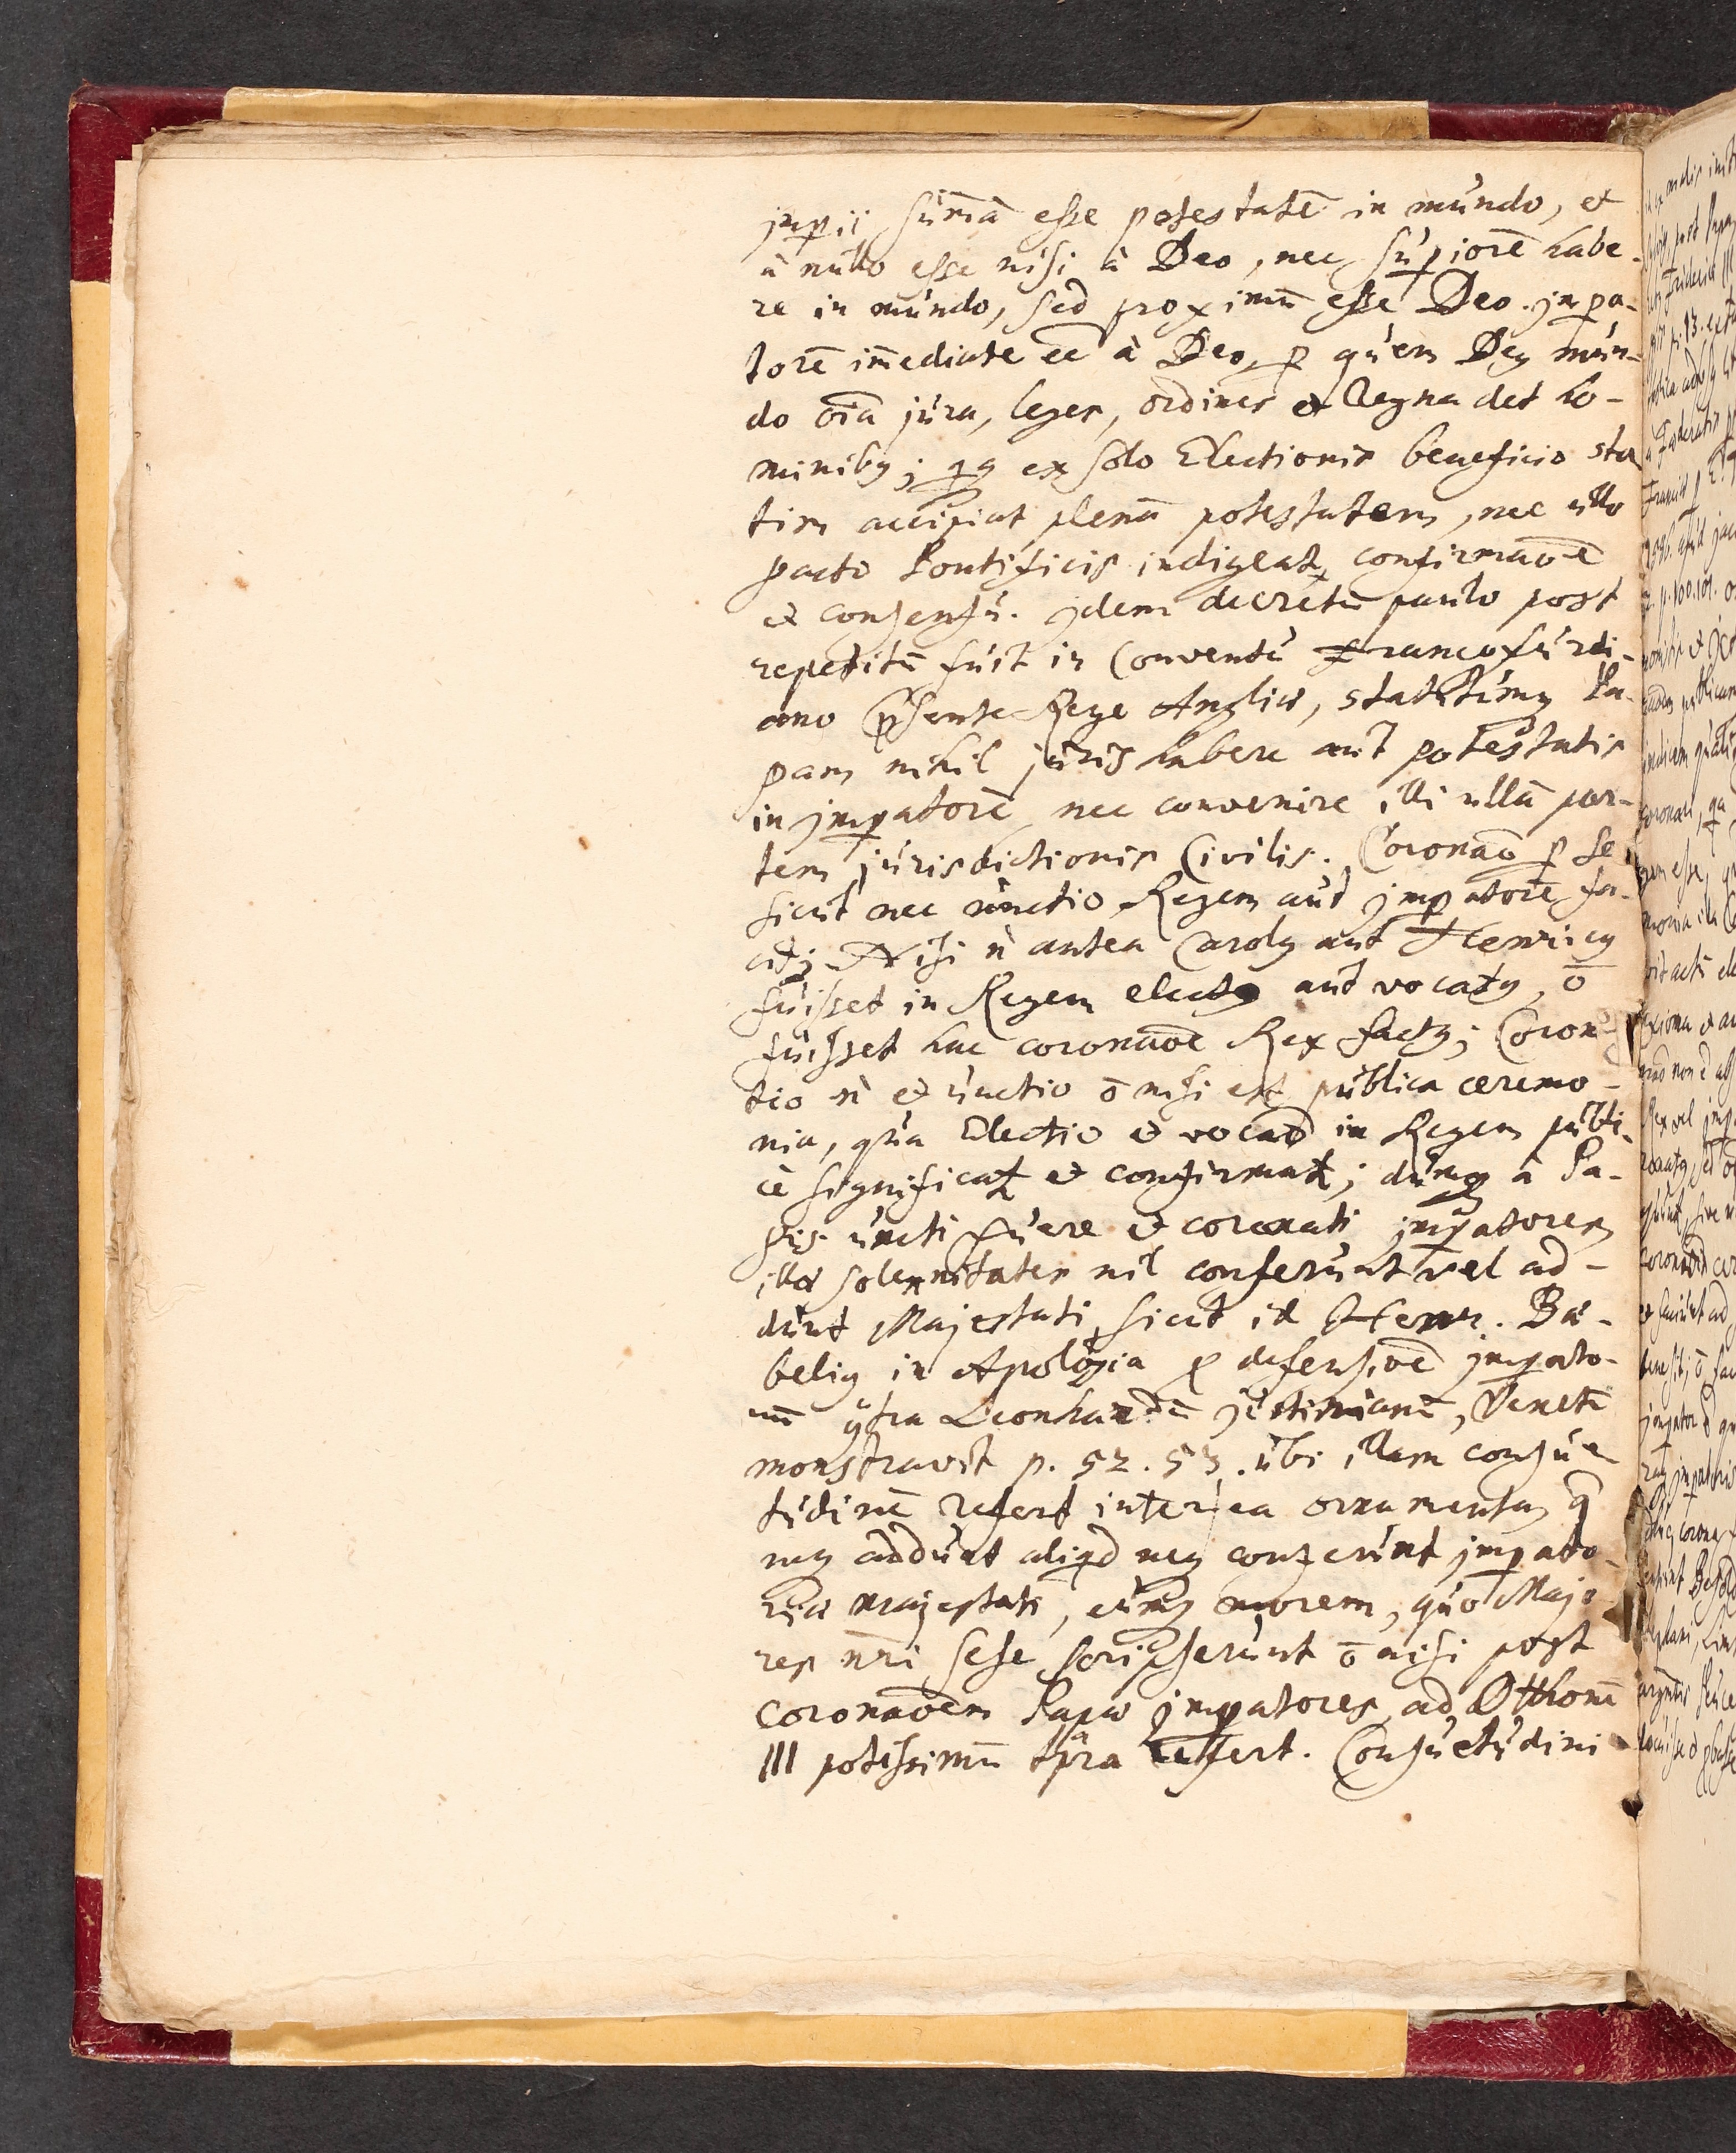 jmp̱ii sum̄ā esse potestatē in mundo, et
à nullo esse nisi à Deo, nec sup̱iorē habe-
re in mundo, sed proximū esse Deo. jmp̱a-
torē im̄ediate eē à Deo, p̱ quem Deꝰ mun-
do oīa jura, leges, ordines et Regna det ho-
minibꝰ; qꝫ ex solo Electionis beneficio sta
tim accipiat plenā potestatem, nec ullo
pacto Pontificis indigeat confirmaōē
et consensu. jdem decretū paulo post
repetitū fuit in Conventu Francofurdi-
ano p̄sente Rege Angliæ, statutumqꝫ Pa-
pam nihil juris habere aut potestatis
in jmp̱atorē, nec convenire illi ullā par-
tem jurisdictionis Civilis. Coronaō p̱ se
sicut nec unctio Regem aut jmp̱atorē fa-
cit; Nisi n̄ antea Carolꝰ aut Henricꝰ
fuisset in Regem electꝰ aut vocatꝰ, ō
fuisset hac coronaōē Rex factꝰ; Coron-
tio n̄ et unctio ō nisi est publica ceremo-
nia, qua Electio et vocaō in Regem publi-
cè significatꝛ et confirmatꝛ; dumqꝫ à Pa-
pis uncti fuere et coronati jmp̱atores
illæ solennitates nil conferunt vel ad-
dunt Majestati, sicut id Henr. Bæ-
beliꝰ in Apologia p̱ defensiōē jmp̱ato-
um ꝯtra Leonhardū justinianū, Venetū
monstravit p. 52. 53. ubi illam consue
tudinē refert inter ea ornamenta, q̄
neqꝫ addunt aliqd neqꝫ conferunt jmp̱ato-
riæ majestati, eumqꝫ morem, quo Majo
res nr̄i sese scripserunt ō nisi post
coronaōem Papæ jmp̱atores, ad Otthonē
III potissimū tp̄ra refert. Consuetudini